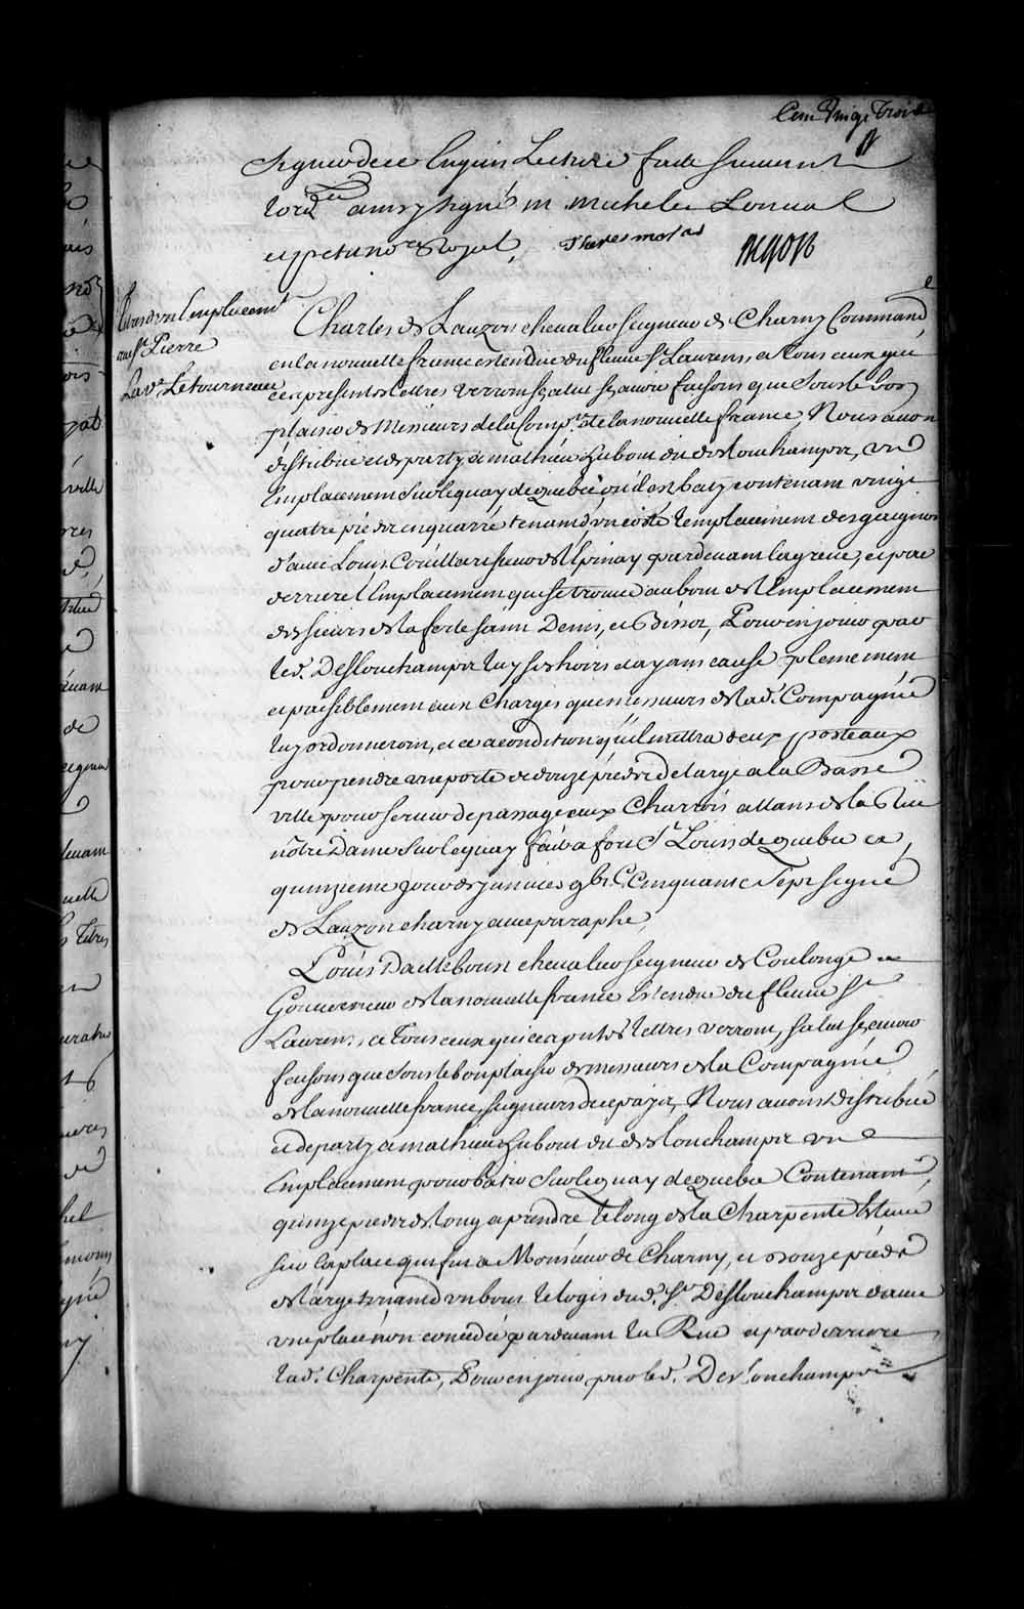 Cent Vingt Trois
signe de ce Enquis Lecture faite suivant
lord.ce ainsy signé m michelle Lonual
et petit no.re Royal,
Titres d'un Emplacem.t
rue S.t Pierre
La v.e Letourneau
Charles de Lauzon chevalier seigneur de Charny Command.
en la nouvelle france estendue du fleuve S.t Laurens, a tous ceux qui
ces presentes Lettres verront salut sçavoir faisons que sous le bon
plaisir de Messieurs de la Comp.e de la nouvelle france, Nous avons
distribué et departy a mathieu hubout dit deslonchamps, un
Emplacement sur le quay de quebec, ou il est baty contenant vingt
quatre pieds en quarré tenant d'un costé Lemplacement des gaignons
d'autre Louis Couillart sieur de Lespinay pardevant la greve, et par
derriere l'Emplacement qui se trouve au bout de l'Emplacement
des sieurs de la ferté saint Denis, et Bissot, Pour en jouir par
led. Deslonchamps luy ses hoirs et ayans cause pleinement
et paisiblement aux Charges que messieurs de lad. Compagnie
luy ordonneront, et ce a condition qu'il mettra deux posteaux
pour pendre une porte de douze pieds de large a la Basse
ville pour servir de passage aux Charois allans de la Rue
nôtre Dame sur le quay fait a fort S.t Louis de quebec ce
quinzieme jour de janvier Cinquante Sept signé
de Lauzon charny avec paraphe,
Louis Dailleboust chevalier seigneur de Coulonge
Gouverneur de la nouvelle france Estendue du fleuve S.t
Laurens, a Tous ceux qui ces p.ntes Lettres verront, salut sçavoir
faisons que sous le bon plaisir de messieurs de la Compagnie
de la nouvelle france, seigneurs de ce pays, Nous avons distribué
et departy a mathieu hubout dit deslonchamps un
Emplacement pour batir sur le quay de quebec Contenant
quinze pieds de long a prendre le long de la Charpente Estevé
sur la place qui fut a Monsieur de Charny, et douze pieds
de large tenant d'un bout le logis dud. S.r Deslonchamps d'autre
une place non concedée pardevant la Rue et par derriere
lad. Charpente, Pour en jouir par led. Deslonchamps